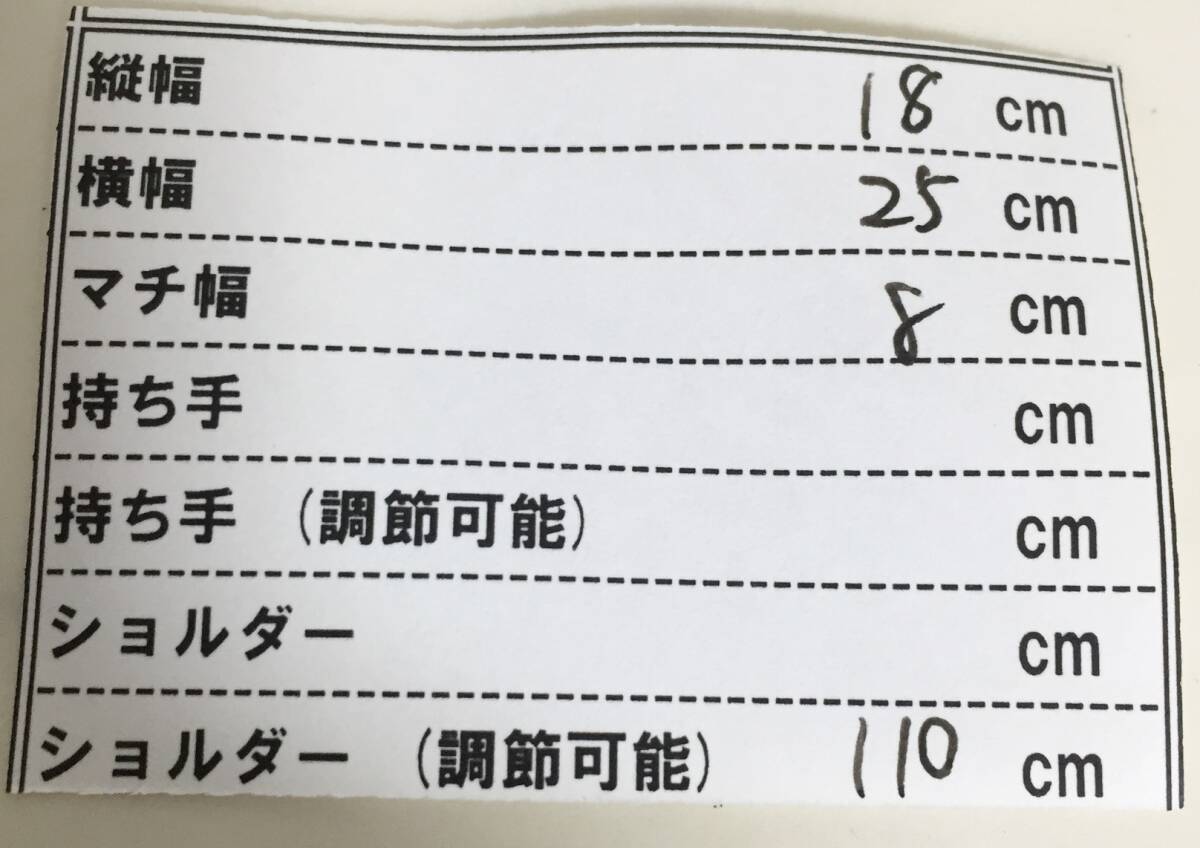 縦幅 18 cm
横幅 25 cm
マチ幅 8 cm
持ち手 cm
持ち手 (調節可能) cm
ショルダー cm
ショルダー (調節可能) 110 cm